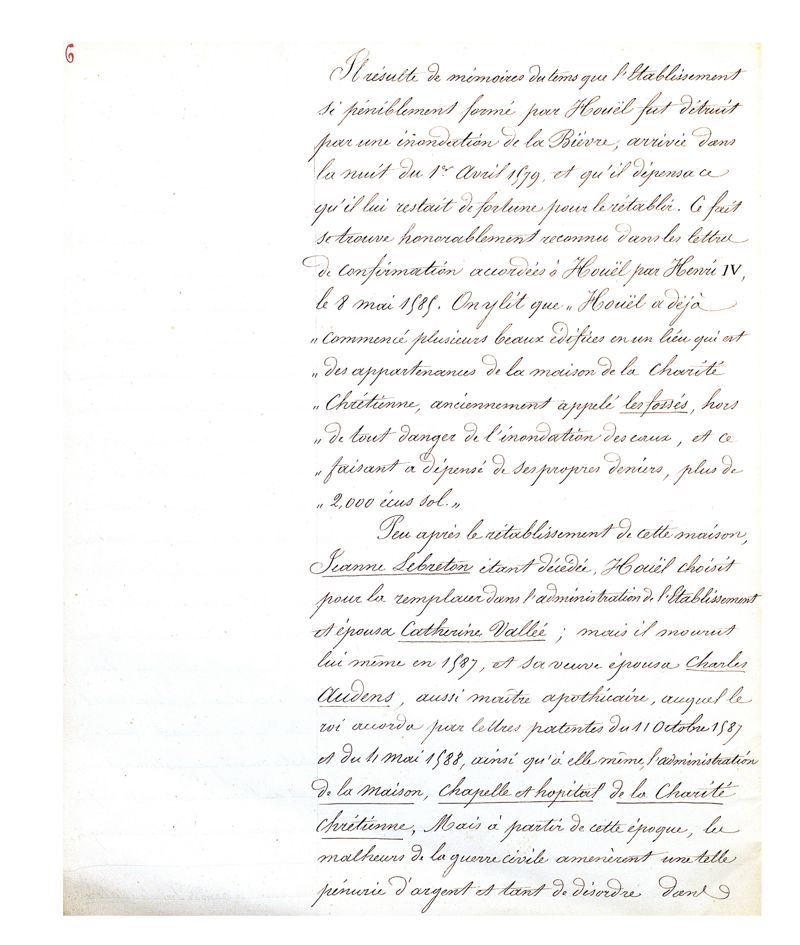 6
Il résulte de mémoires du tems que l'Etablissement
si péniblement formé par Houël fut détruit
par une inondation de la Bièvre, arrivée dans
la nuit du 1er Avril 1579, et qu'il dépensa ce
qu'il lui restait de fortune pour le rétablir. Ce fait
se trouve honorablement reconnu dans les lettres
de confirmation accordées à Houël par Henri IV,
le 8 mai 1585. On y lit que „ Houël a déjà
„ commencé plusieurs beaux édifices en un lieu qui est
„ des appartenances de la maison de la Charité
„ Chrétienne, anciennement appelé les fossés, hors
„ de tout danger de l'inondation des eaux, et ce
„ faisant a dépensé de ses propres deniers, plus de
„ 2,000 écus sol. „
Peu après le rétablissement de cette maison,
Jeanne Lebreton étant décédée, Houël choisit
pour la remplacer dans l'administration de l'Etablissement
et épousa Catherine Vallée ; mais il mourut
lui même en 1587, et sa veuve épousa Charles
Audens, aussi maître apothicaire, auquel le
roi accorda par lettres patentes du 11 Octobre 1587
et du 11 mai 1588, ainsi qu'à elle même, l'administration
de la maison, Chapelle et hopital de la Charité
Chrétienne. Mais à partir de cette époque, les
malheurs de la guerre civile amenèrent une telle
pénurie d'argent et tant de désordre dans